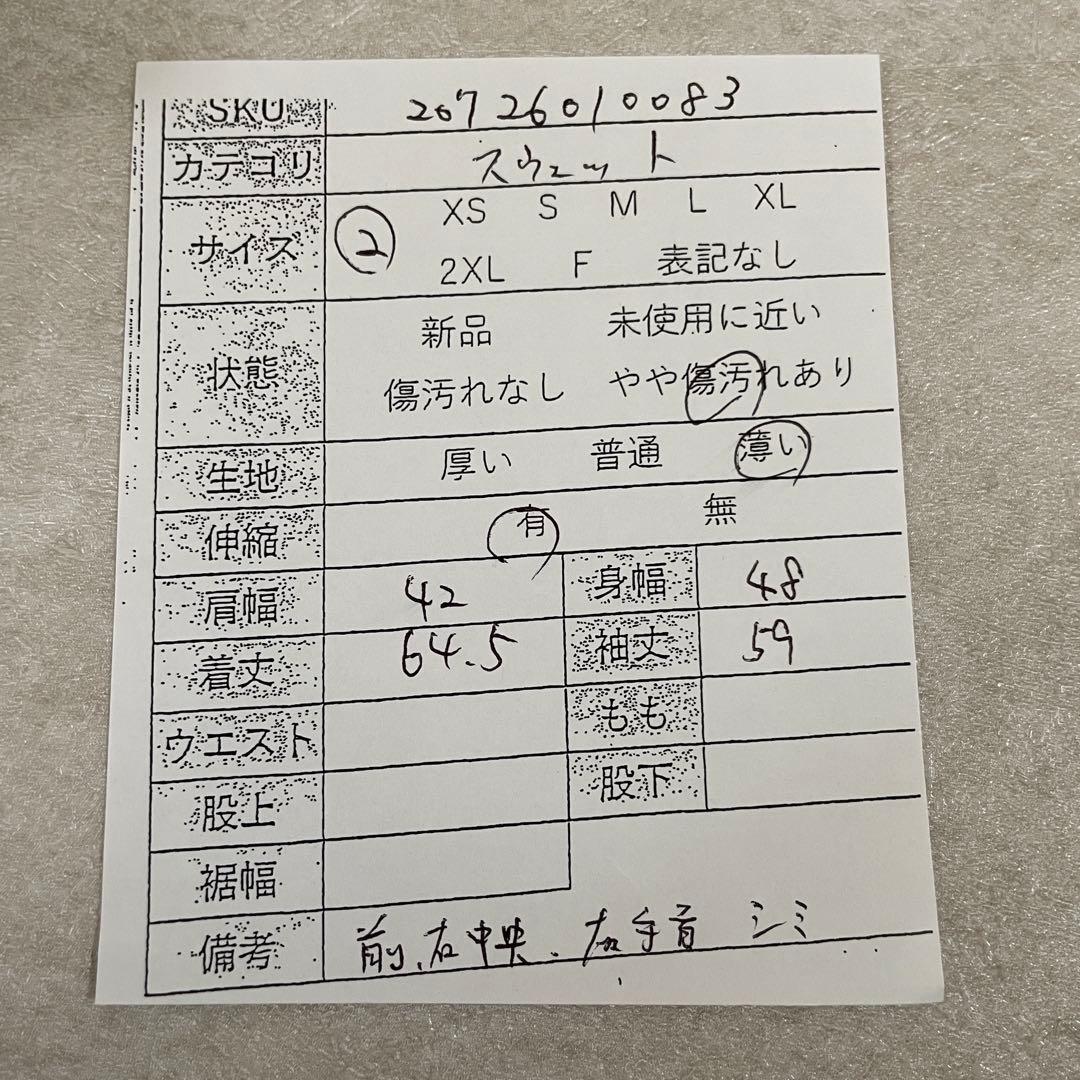 SKU 20726010083
カテゴリ スウェット
XS S M L XL
サイズ 2
2XL F 表記なし
新品 未使用に近い
状態
傷汚れなし やや傷汚れあり
生地 厚い 普通 薄い
伸縮 有 無
肩幅 42 身幅 48
着丈 64.5 袖丈 59
ウエスト もも
股上 股下
裾幅
備考 前、右中央、右手首 シミ